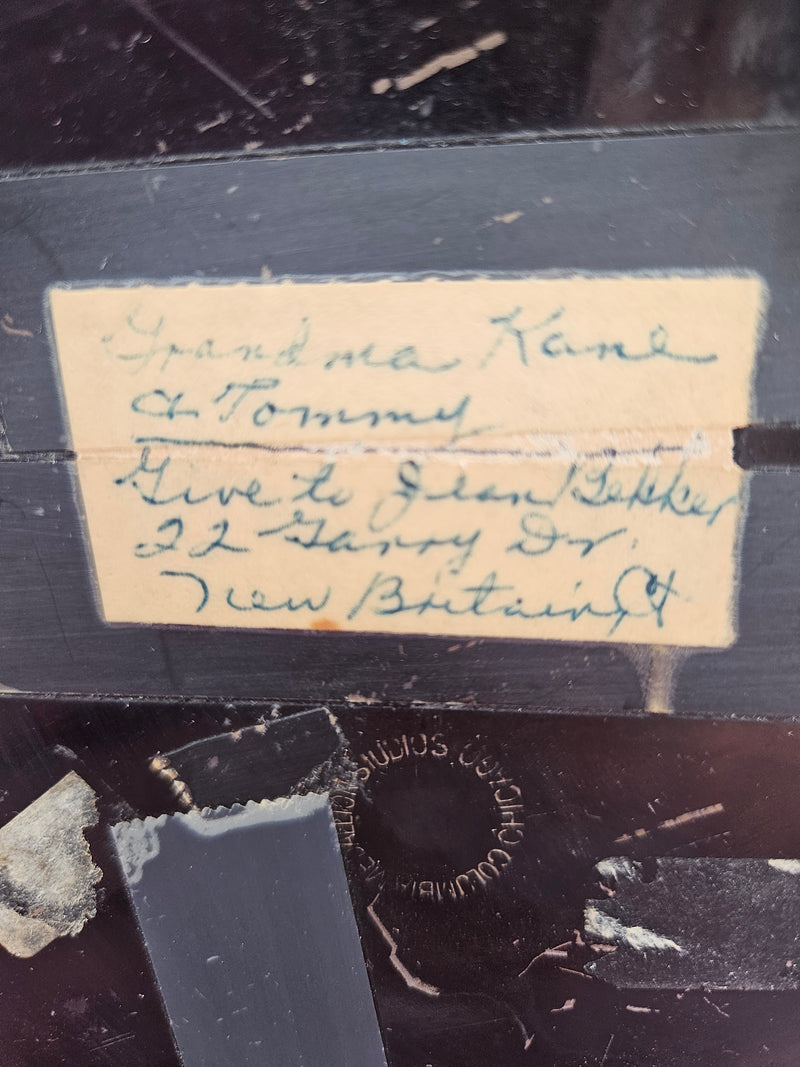 Grandma Kane
& Tommy
Give to Jean Bekker
22 Garry Dr.
New Britain, Ct
STUDIOS CHICAGO COLUMBIA